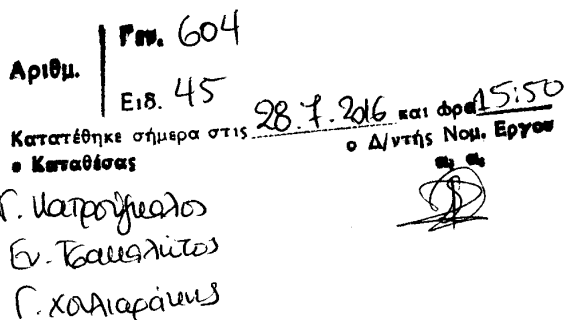 Γεν. 604
Αριθμ.
Ειδ. 45
Κατατέθηκε σήμερα στις 28.7.2016 και ώρα 15:50
ο Καταθέσας
ο Δ/ντής Νομ. Εργου
α, α,
Γ. Κατρούγκαλος
Ευ. Τσακαλώτος
Γ. Χουλιαράκης